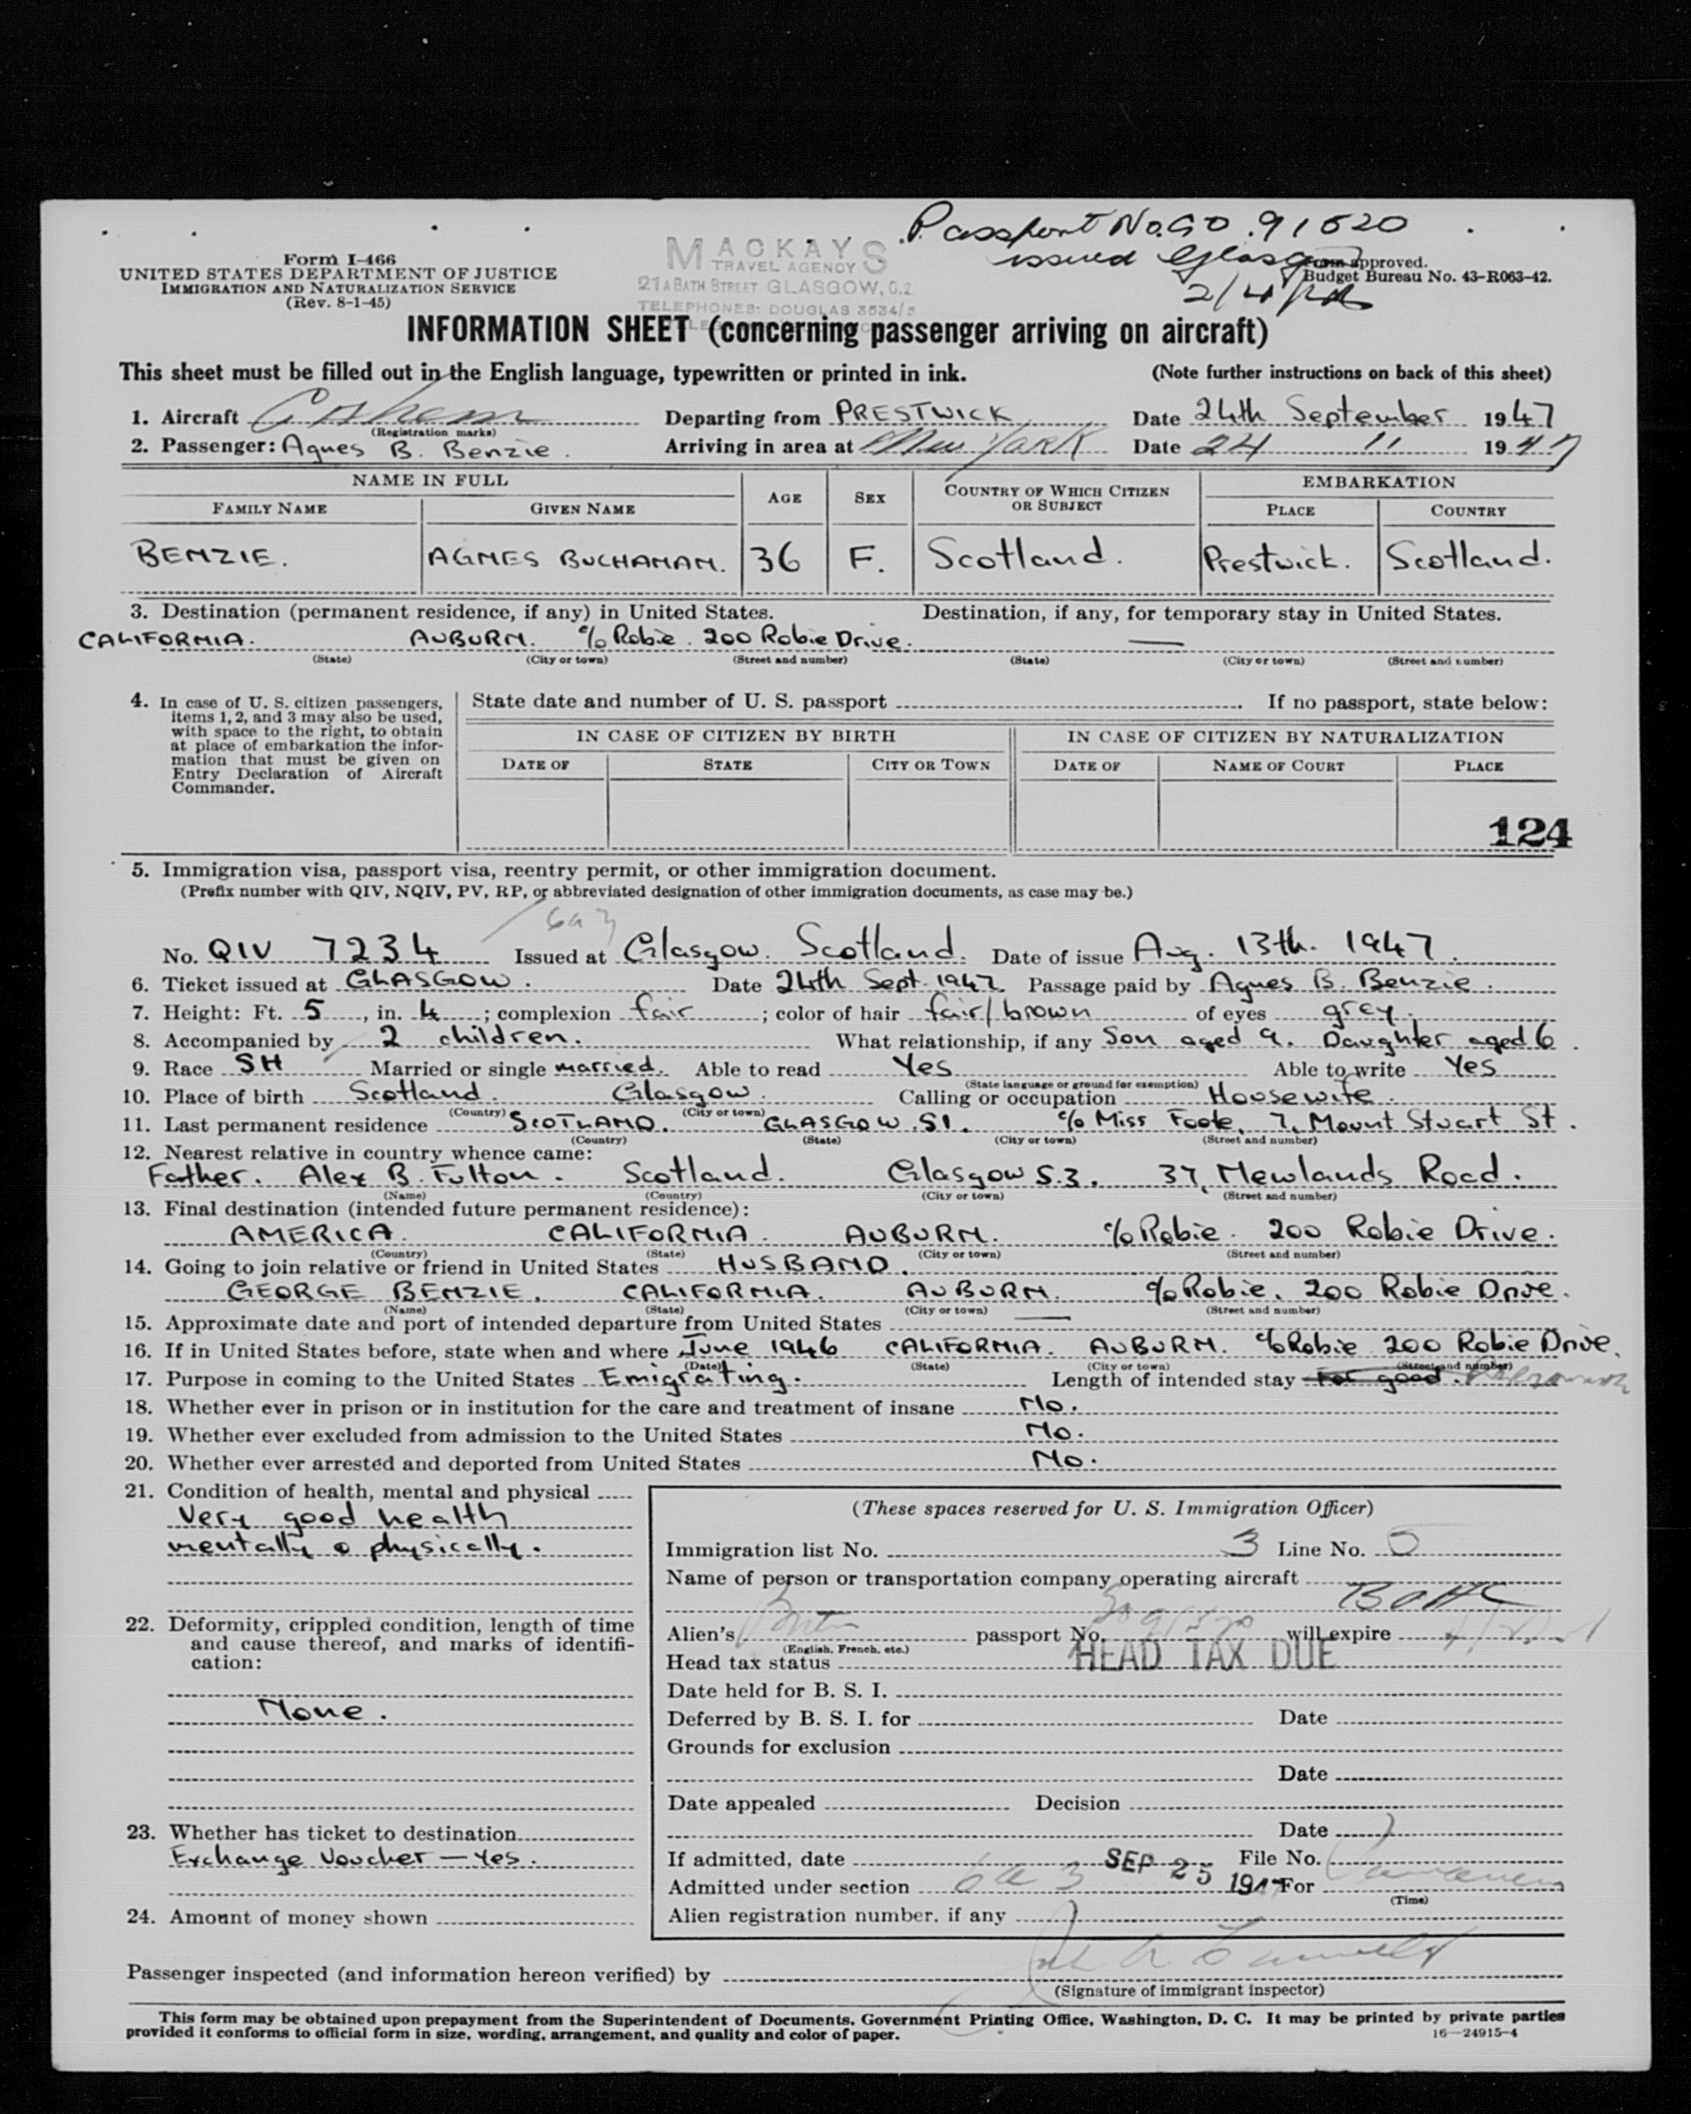 Passport No. GO. 91520
issued Glasgow
Form I-466
UNITED STATES DEPARTMENT OF JUSTICE
IMMIGRATION AND NATURALIZATION SERVICE
(Rev. 8-1-45)
MACKAYS
TRAVEL AGENCY
21A BATH STREET GLASGOW, C.2
TELEPHONES: DOUGLAS 3534/5
Form approved.
Budget Bureau No. 43-R063-42.
INFORMATION SHEET (concerning passenger arriving on aircraft)
This sheet must be filled out in the English language, typewritten or printed in ink. (Note further instructions on back of this sheet)
1. Aircraft (Registration marks) Departing from PRESTWICK Date 24th September 1947
2. Passenger: Agnes B. Benzie. Arriving in area at New York Date 24 " 1947
NAME IN FULL AGE SEX COUNTRY OF WHICH CITIZEN OR SUBJECT EMBARKATION
FAMILY NAME GIVEN NAME PLACE COUNTRY
BENZIE. AGNES BUCHANAN. 36 F. Scotland. Prestwick. Scotland.
3. Destination (permanent residence, if any) in United States. Destination, if any, for temporary stay in United States.
CALIFORNIA. AUBURN. c/o Robie. 200 Robie Drive. —
(State) (City or town) (Street and number) (State) (City or town) (Street and number)
4. In case of U. S. citizen passengers, items 1, 2, and 3 may also be used, with space to the right, to obtain at place of embarkation the information that must be given on Entry Declaration of Aircraft Commander.
State date and number of U. S. passport If no passport, state below:
IN CASE OF CITIZEN BY BIRTH IN CASE OF CITIZEN BY NATURALIZATION
DATE OF STATE CITY OR TOWN DATE OF NAME OF COURT PLACE
124
5. Immigration visa, passport visa, reentry permit, or other immigration document.
(Prefix number with QIV, NQIV, PV, RP, or abbreviated designation of other immigration documents, as case may be.)
6a3
No. QIV 7234 Issued at Glasgow. Scotland. Date of issue Aug. 13th. 1947.
6. Ticket issued at GLASGOW. Date 24th Sept. 1947. Passage paid by Agnes B. Benzie.
7. Height: Ft. 5, in. 4; complexion fair; color of hair fair/brown of eyes grey.
8. Accompanied by 2 children. What relationship, if any Son aged 9. Daughter aged 6.
9. Race SH Married or single married. Able to read Yes Able to write Yes
(State language or ground for exemption)
10. Place of birth Scotland. Glasgow. Calling or occupation Housewife.
(Country) (City or town)
11. Last permanent residence SCOTLAND. GLASGOW. S1. c/o Miss Foote, 7, Mount Stuart St.
(Country) (State) (City or town) (Street and number)
12. Nearest relative in country whence came:
Father. Alex B. Fulton. Scotland. Glasgow S.3. 37, Newlands Road.
(Name) (Country) (City or town) (Street and number)
13. Final destination (intended future permanent residence):
AMERICA. CALIFORNIA. AUBURN. c/o Robie. 200 Robie Drive.
(Country) (State) (City or town) (Street and number)
14. Going to join relative or friend in United States HUSBAND.
GEORGE BENZIE. CALIFORNIA. AUBURN. c/o Robie. 200 Robie Drive.
(Name) (State) (City or town) (Street and number)
15. Approximate date and port of intended departure from United States —
16. If in United States before, state when and where June 1946 CALIFORNIA. AUBURN. c/o Robie 200 Robie Drive.
(Date) (State) (City or town) (Street and number)
17. Purpose in coming to the United States Emigrating. Length of intended stay For good.
18. Whether ever in prison or in institution for the care and treatment of insane No.
19. Whether ever excluded from admission to the United States No.
20. Whether ever arrested and deported from United States No.
21. Condition of health, mental and physical
Very good health
mentally & physically.
22. Deformity, crippled condition, length of time and cause thereof, and marks of identification:
None.
23. Whether has ticket to destination
Exchange Voucher — Yes.
24. Amount of money shown
(These spaces reserved for U. S. Immigration Officer)
Immigration list No. 3 Line No. 5
Name of person or transportation company operating aircraft
Alien's passport No. will expire
(English, French, etc.)
Head tax status HEAD TAX DUE
Date held for B. S. I.
Deferred by B. S. I. for Date
Grounds for exclusion
Date
Date appealed Decision
Date
If admitted, date SEP 25 1947 File No.
Admitted under section 6a3 For
(Time)
Alien registration number, if any
Passenger inspected (and information hereon verified) by
(Signature of immigrant inspector)
This form may be obtained upon prepayment from the Superintendent of Documents, Government Printing Office, Washington, D. C. It may be printed by private parties
provided it conforms to official form in size, wording, arrangement, and quality and color of paper. 16—24915-4